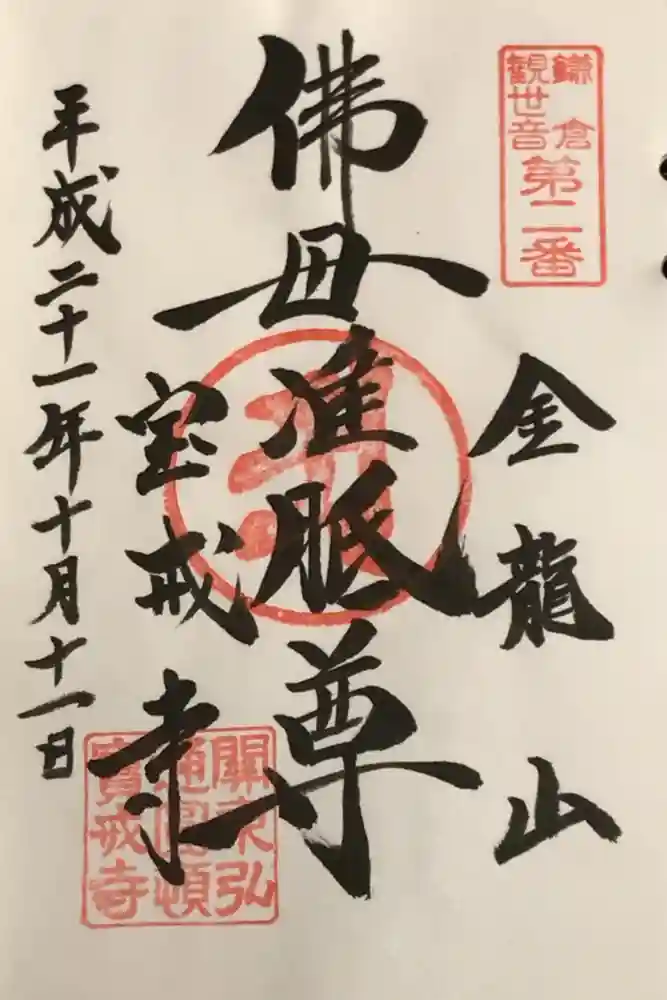 鎌倉
観世音
第二番
金龍山
佛母准胝尊
宝戒寺
平成二十一年十月十一日
關東弘
通圓頓
寶戒寺